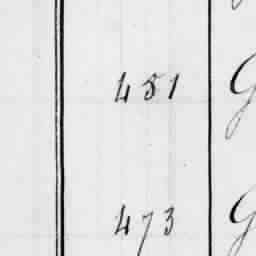 451 G
473 G